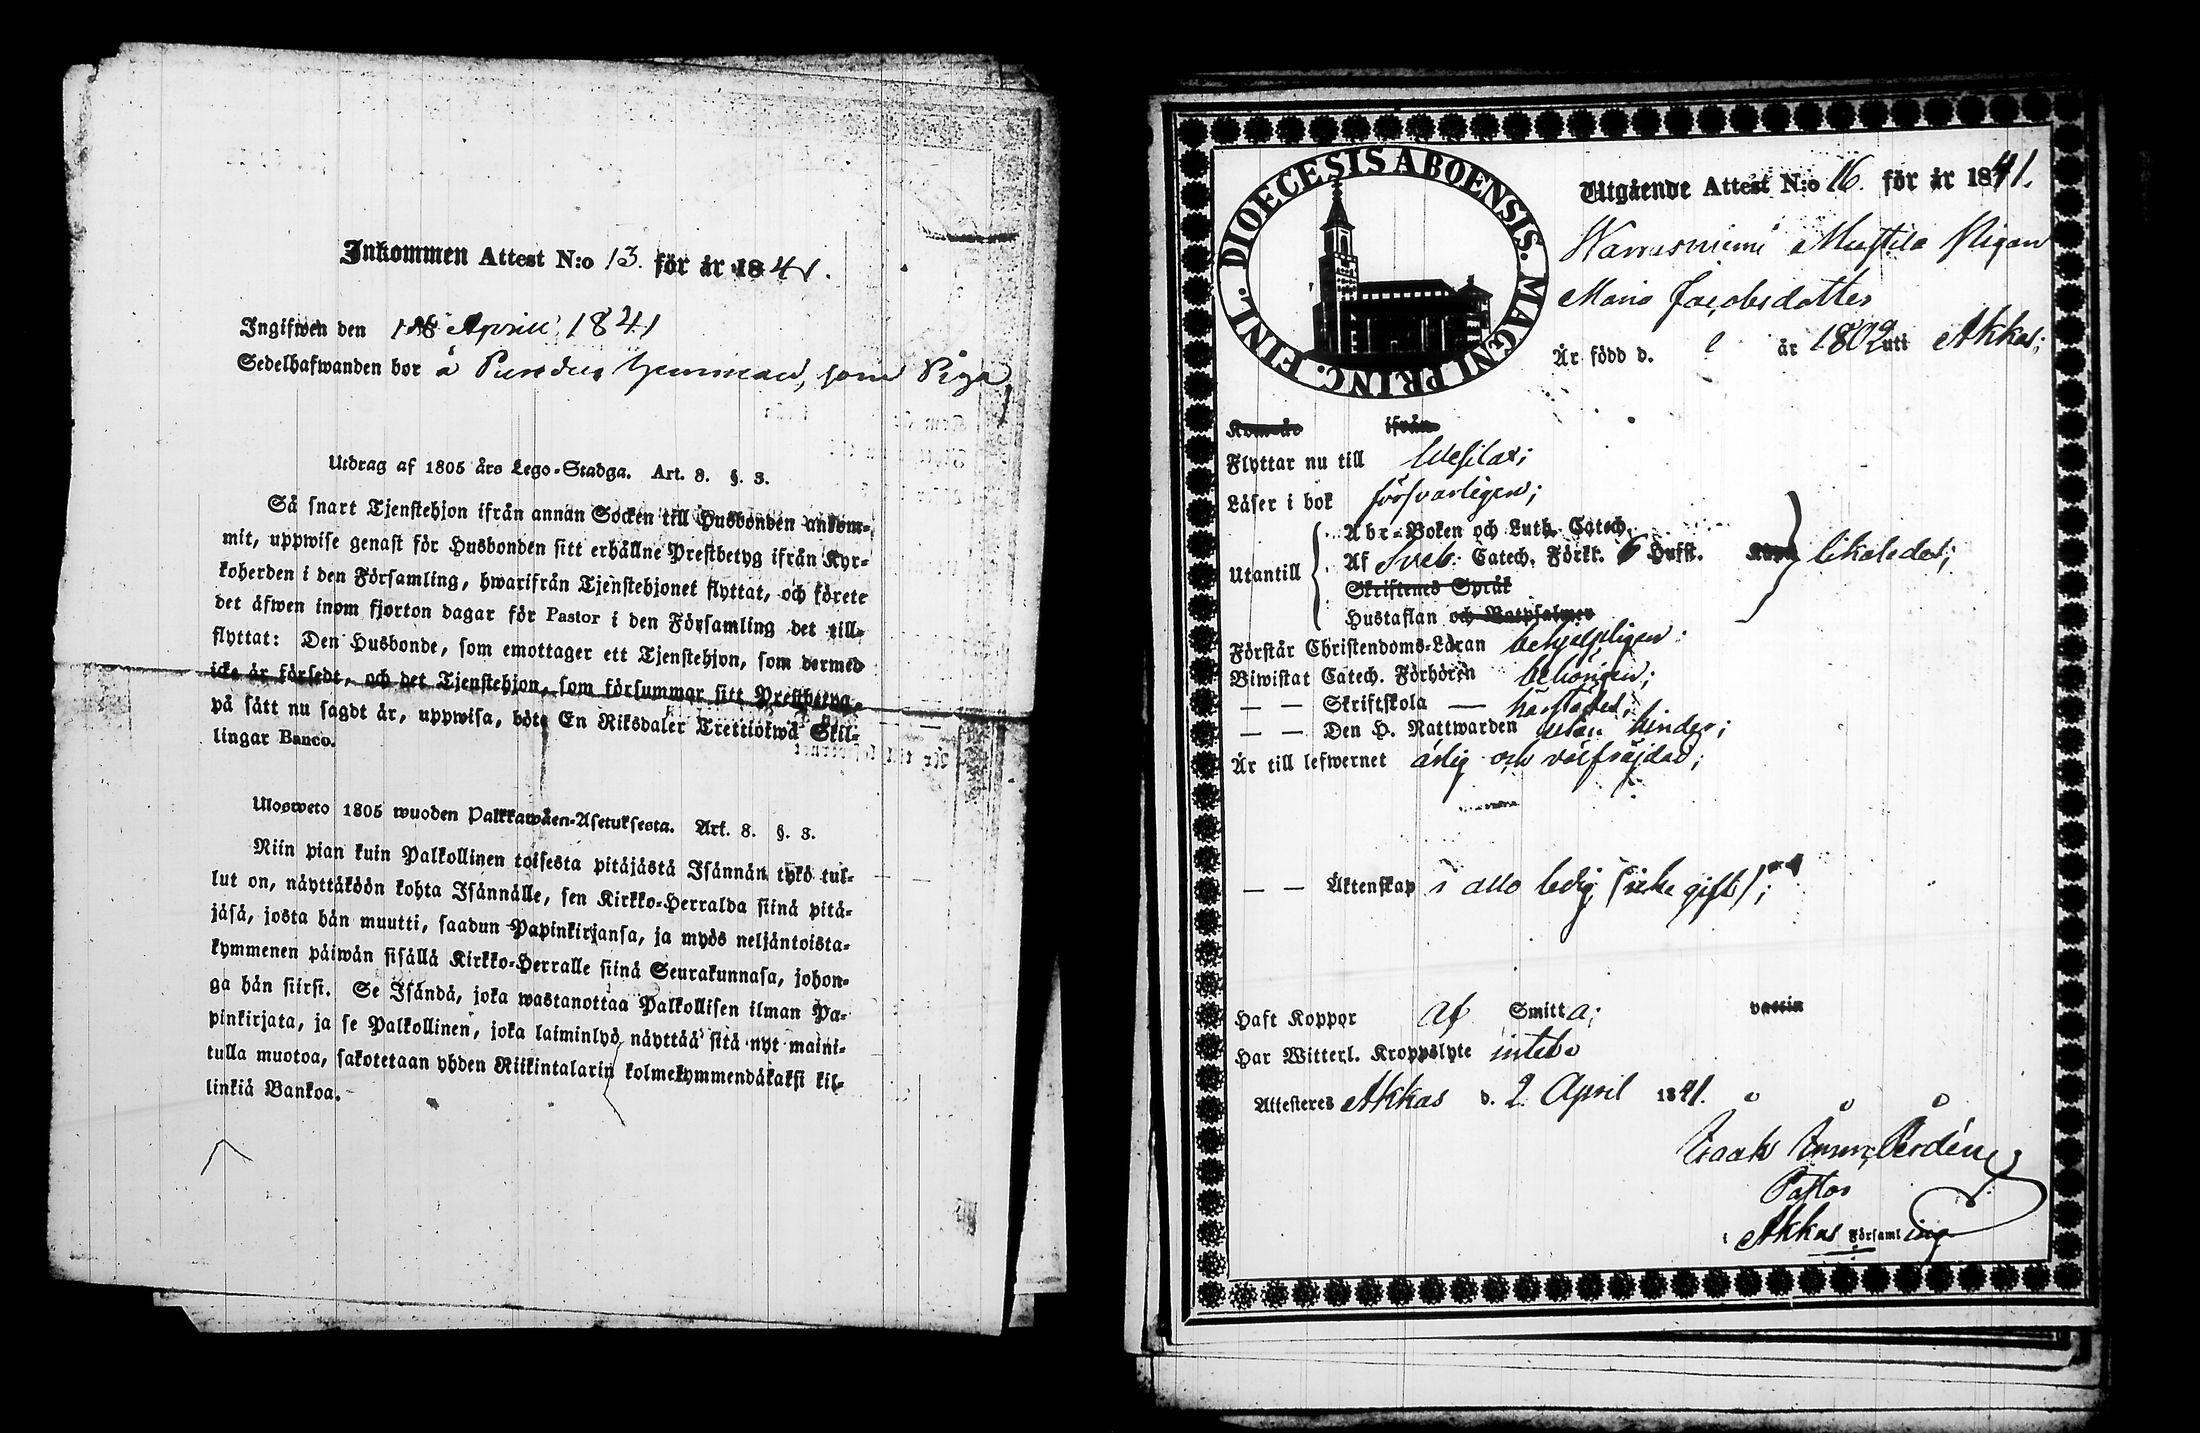 Inkommen Attest N:o 13. för år 1841.
Ingifwen den Aprill 1841
Sedelhafwanden bor å som Piga
Utdrag af 1805 års Lego-Stadga. Art. 8. §. 3.
Så snart Tjenstehjon ifrån annan Socken till Husbonden ankom-
mit, uppwise genast för Husbonden sitt erhållne Prestbetyg ifrån Kyr-
koherden i den Församling, hwarifrån Tjenstehjonet flyttat, och förete
det äfwen inom fjorton dagar för Pastor i den Församling det till-
flyttat: Den Husbonde, som emottager ett Tjenstehjon, som dermed
icke är försedt, och det Tjenstehjon, som försummar sitt Prestbetyg,
på sätt nu sagdt är, uppwisa, böte En Riksdaler Trettiotwå Skil-
lingar Banco.
Ulosweto 1805 wuoden Palkkawäen-Asetuksesta. Art. 8. §. 3.
Niin pian kuin Palkollinen toisesta pitäjästä Isännän tykö tul-
lut on, näyttäköön kohta Isännälle, sen Kirkko-Herralda siinä pitä-
jäsä, josta hän muutti, saadun Papinkirjansa, ja myös neljäntoista-
kymmenen päiwän sisällä Kirkko-Herralle siinä Seurakunnasa, johon-
ga hän siirsi. Se Isändä, joka wastanottaa Palkollisen ilman Pa-
pinkirjata, ja se Palkollinen, joka laiminlyö näyttää sitä nyt maini-
tulla muotoa, sakotetaan yhden Riikintalarin kolmekymmendäkaksi kil-
linkiä Bankoa.
DIOECESIS ABOENSIS. MAGNI PRINC. FINL.
Utgående Attest N:o 16. för år 1841.
Warrasniemi Mustila Pigan
Maria Jacobsdotter
Är född d. år 1809 uti Akkas;
Kom år ifrån
Flyttar nu till Wesilax;
Läser i bok försvarligen;
Utantill
Abc-Boken och Luth. Catech.
Af Sveb. Catech. Förkl. 6 Hufst. likaledes;
Skriftenes Språk
Hustaflan och Botpsalmer
Förstår Christendoms-Läran behjelpligen.
Biwistat Catech. Förhören behörigen;
— — Skriftskola — härstädes;
— — Den H. Nattwarden utan hinder;
Är till lefwernet ärlig och välfräjdad;
— — Äktenskap i allo ledig (icke gift);
Haft Koppor af Smitta; vaccin
Har Witterl. Kroppslyte intet
Attesteres Akkas d. 2 April 1841.
Isaak Perdén
Pastor
i Akkas Församling